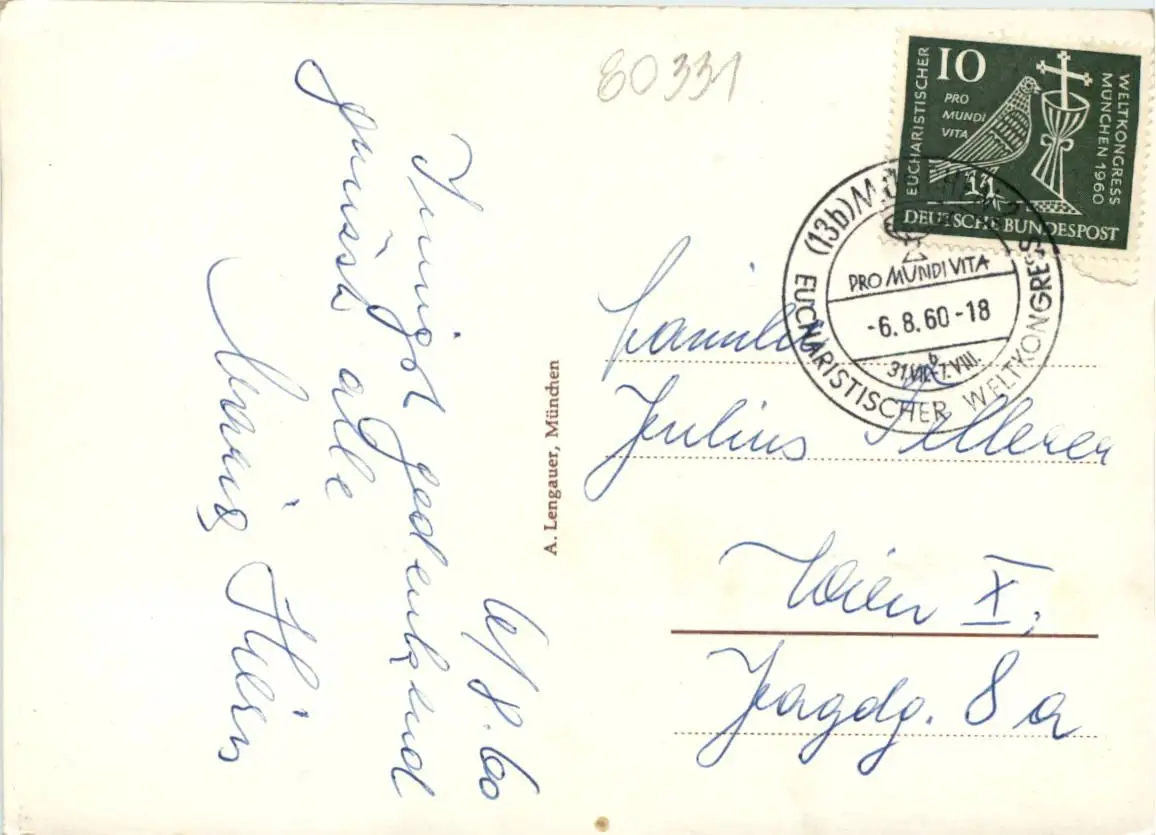 80331
EUCHARISTISCHER
WELTKONGRESS
MÜNCHEN 1960
10
PRO
MUNDI
VITA
DEUTSCHE BUNDESPOST
(13b) MÜNCHEN 2
PRO MUNDI VITA
-6.8.60-18
b
31.VII.-7.VIII.
EUCHARISTISCHER WELTKONGRESS
6/8.60
Innigst gedenkend
grüsst alle
A. Lengauer, München
Familie
Julius
Wien X,
Jagdg. 8a